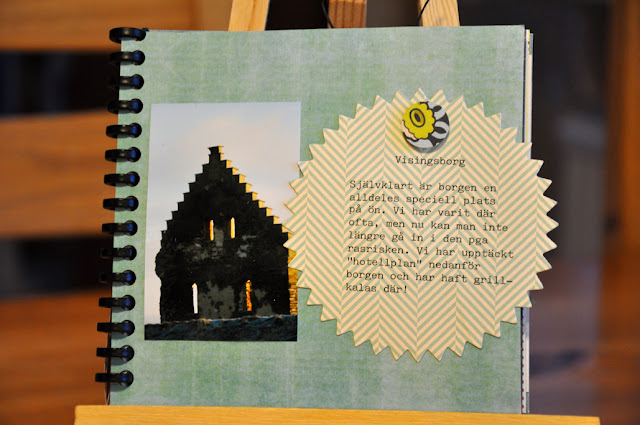 Visingsborg
Självklart är borgen en
alldeles speciell plats
på ön. Vi har varit där
ofta, men nu kan man inte
längre gå in i den pga
rasrisken. Vi har upptäckt
"hotellplan" nedanför
borgen och har haft grill-
kalas där!